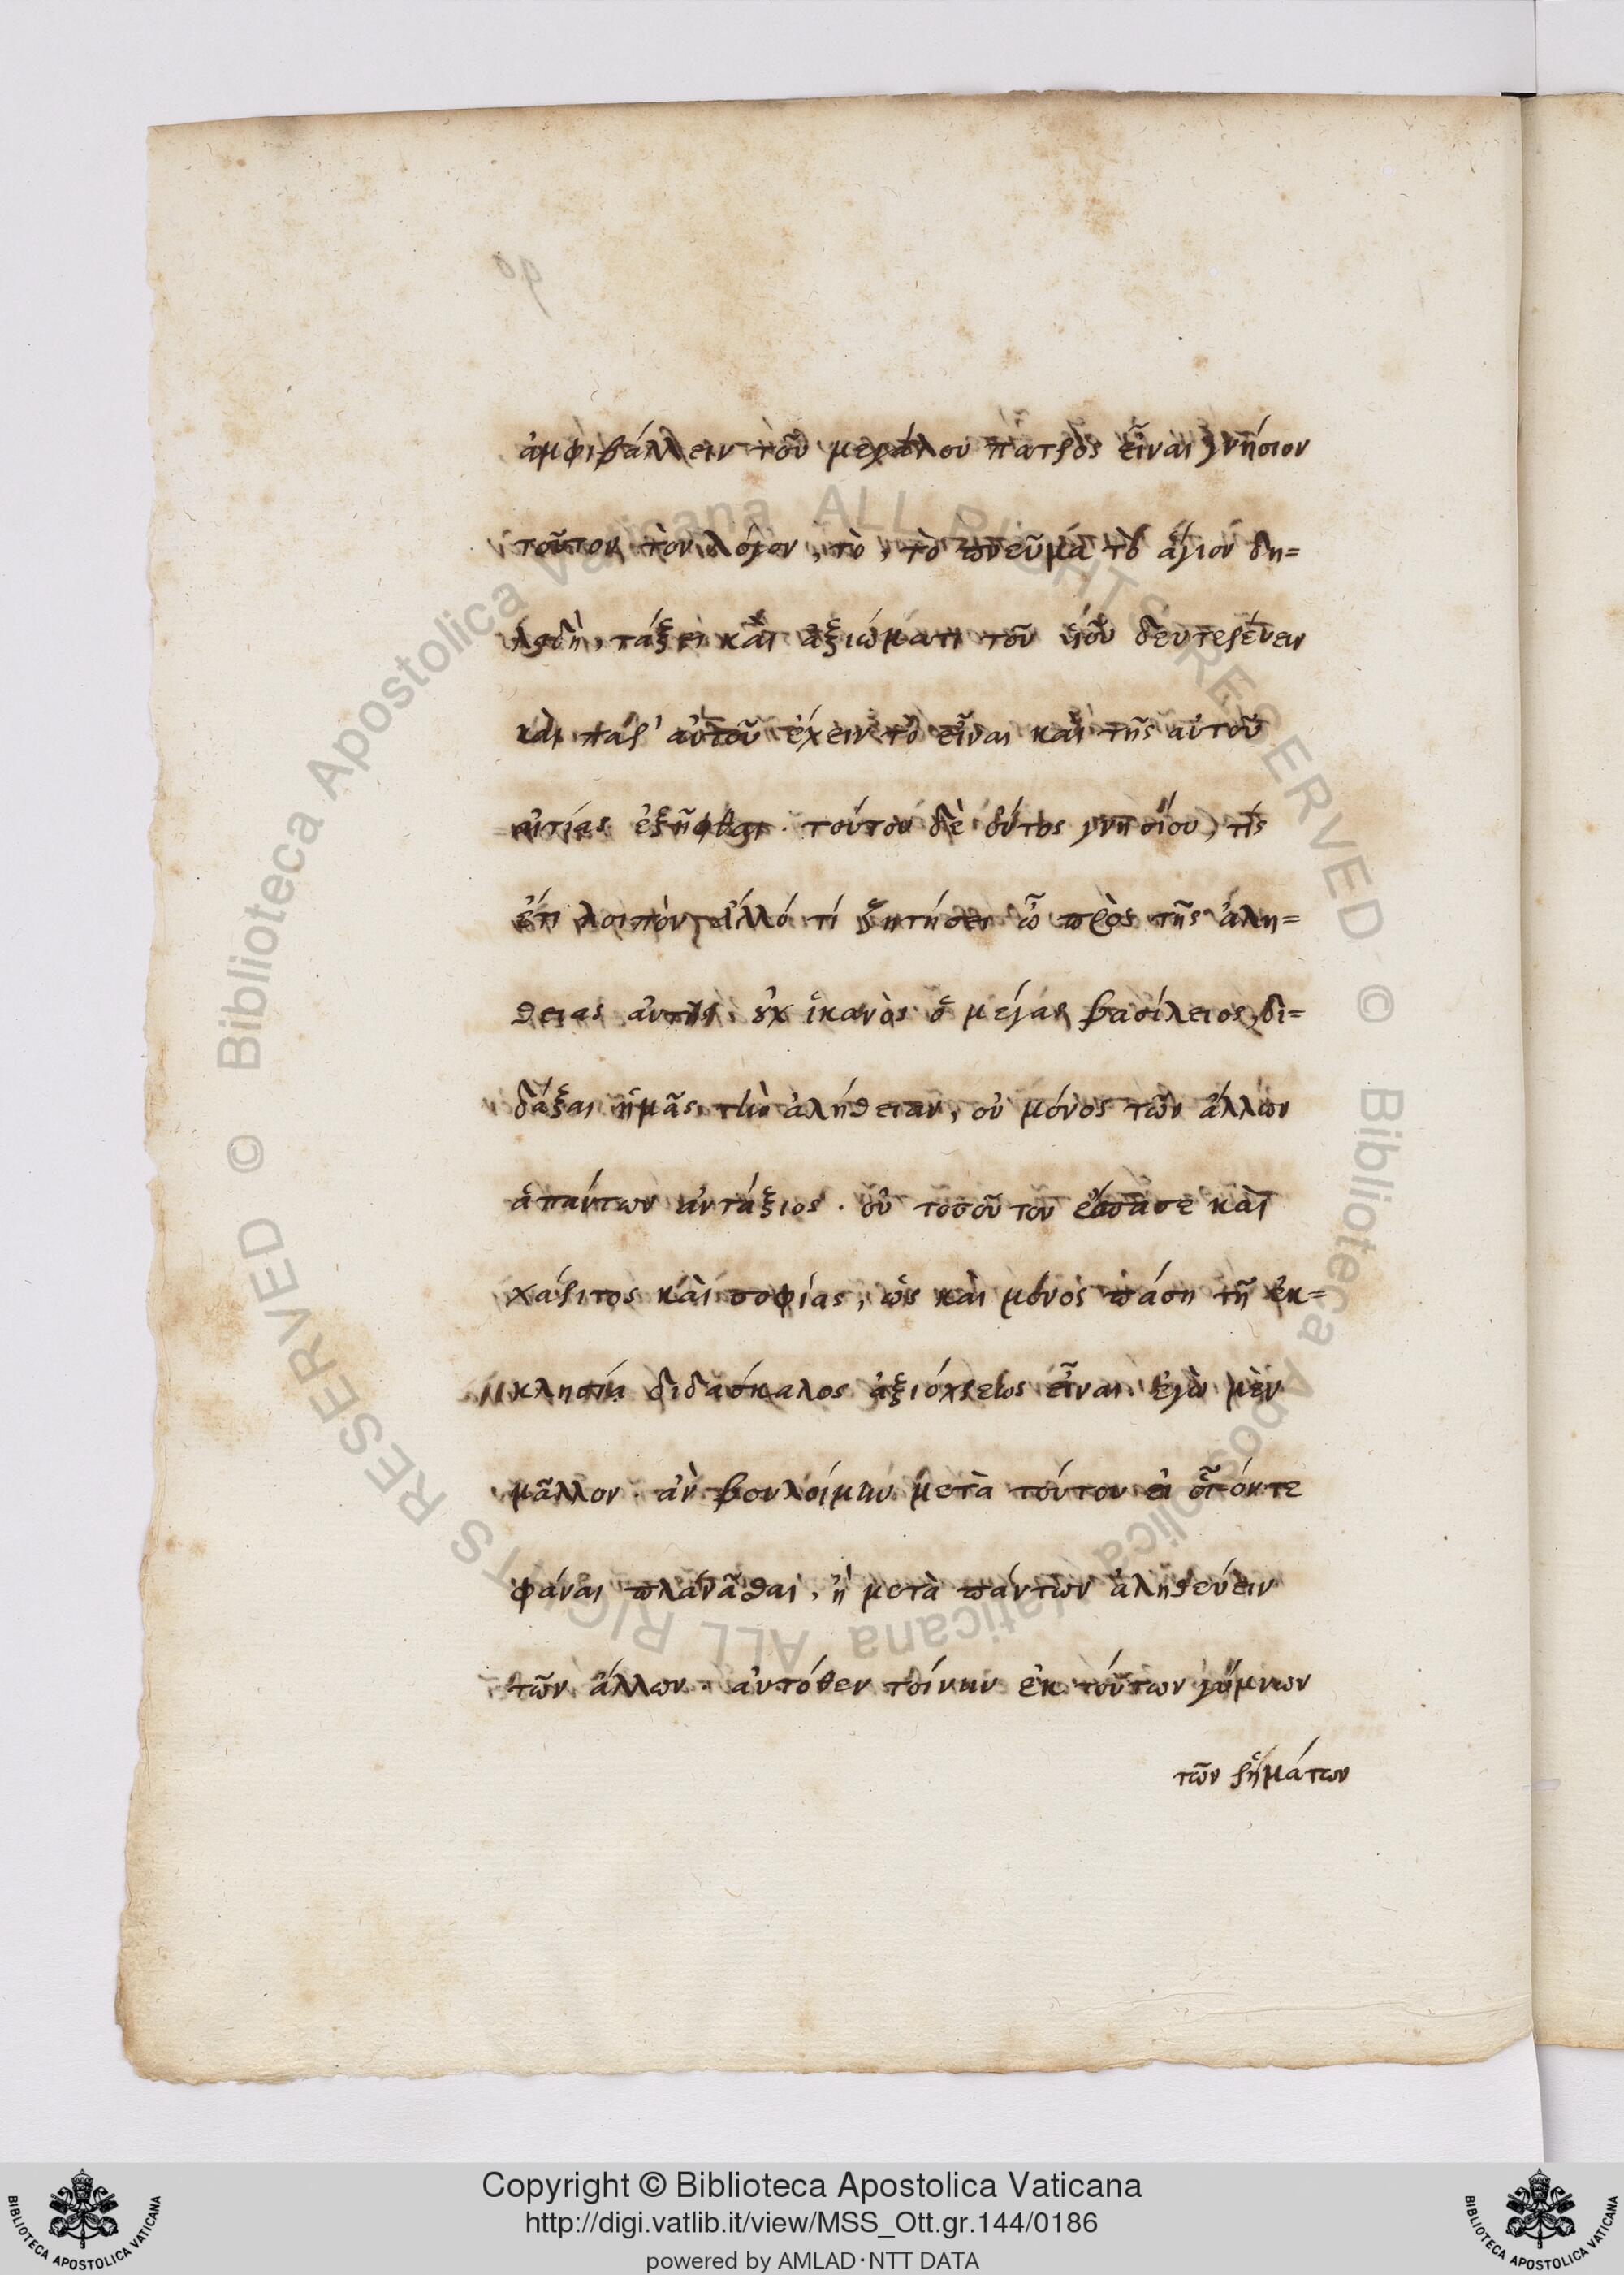 ἀμφιβάλλειν τοῦ μεγάλου πατρὸς εἶναι γνήσιον
τοῦτον τὸν λόγον, τὸ, τὸ πνεῦμα τὸ ἅγιον δη=
λαδὴ, τάξει καὶ ἀξιώματι τοῦ υἱοῦ δευτερεύειν
καὶ παρ' αὐτοῦ ἔχειν τὸ εἶναι καὶ τῆς αὐτοῦ
αἰτίας ἐξῆφθαι. τούτου δὲ ὄντος γνησίου, τίς
ἔτι λοιπὸν ἄλλό τί ζητήσει ὦ πρὸς τῆς ἀλη=
θείας αὐτῆς. οὐχ ἱκανὸς ὁ μέγας βασίλειος, δι=
δάξαι ἡμᾶς τὴν ἀλήθειαν, οὐ μόνος τῶν ἄλλων
ἁπάντων ἀντάξιος. οὐ τοσοῦτον ἔσπασε καὶ
χάριτος καὶ σοφίας, ὡς καὶ μόνος πάσῃ τῇ ἐκ=
κλησίᾳ διδάσκαλος ἀξιόχρεως εἶναι. ἐγὼ μὲν
μᾶλλον ἂν βουλοίμην μετὰ τούτου εἰ οἷόντε
φάναι πλανᾶσθαι, ἢ μετὰ πάντων ἀληθεύειν
τῶν ἄλλων. αὐτόθεν τοίνυν ἐκ τούτων γυμνῶν
τῶν ῥημάτων
Copyright © Biblioteca Apostolica Vaticana
http://digi.vatlib.it/view/MSS_Ott.gr.144/0186
powered by AMLAD·NTT DATA